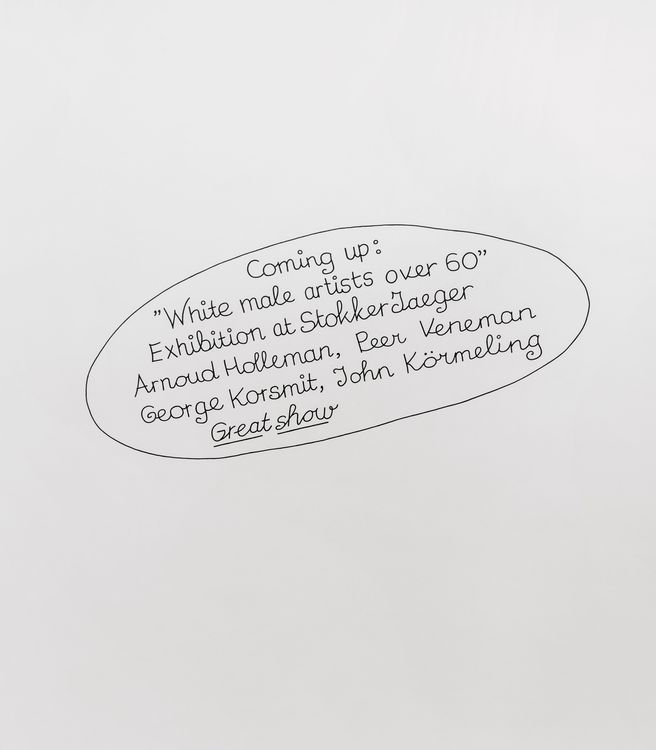 Coming up:
"White male artists over 60"
Exhibition at StokkerJaeger
Arnoud Holleman, Peer Veneman
George Korsmit, John Körmeling
Great show